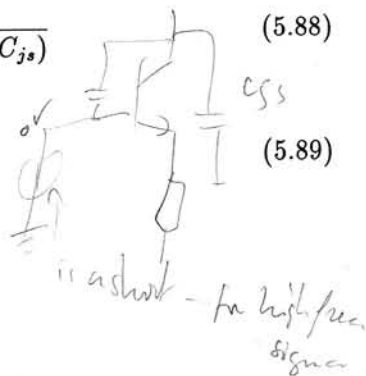 (5.88)
C_{js})
(5.89)
is a short - for high frea
signa